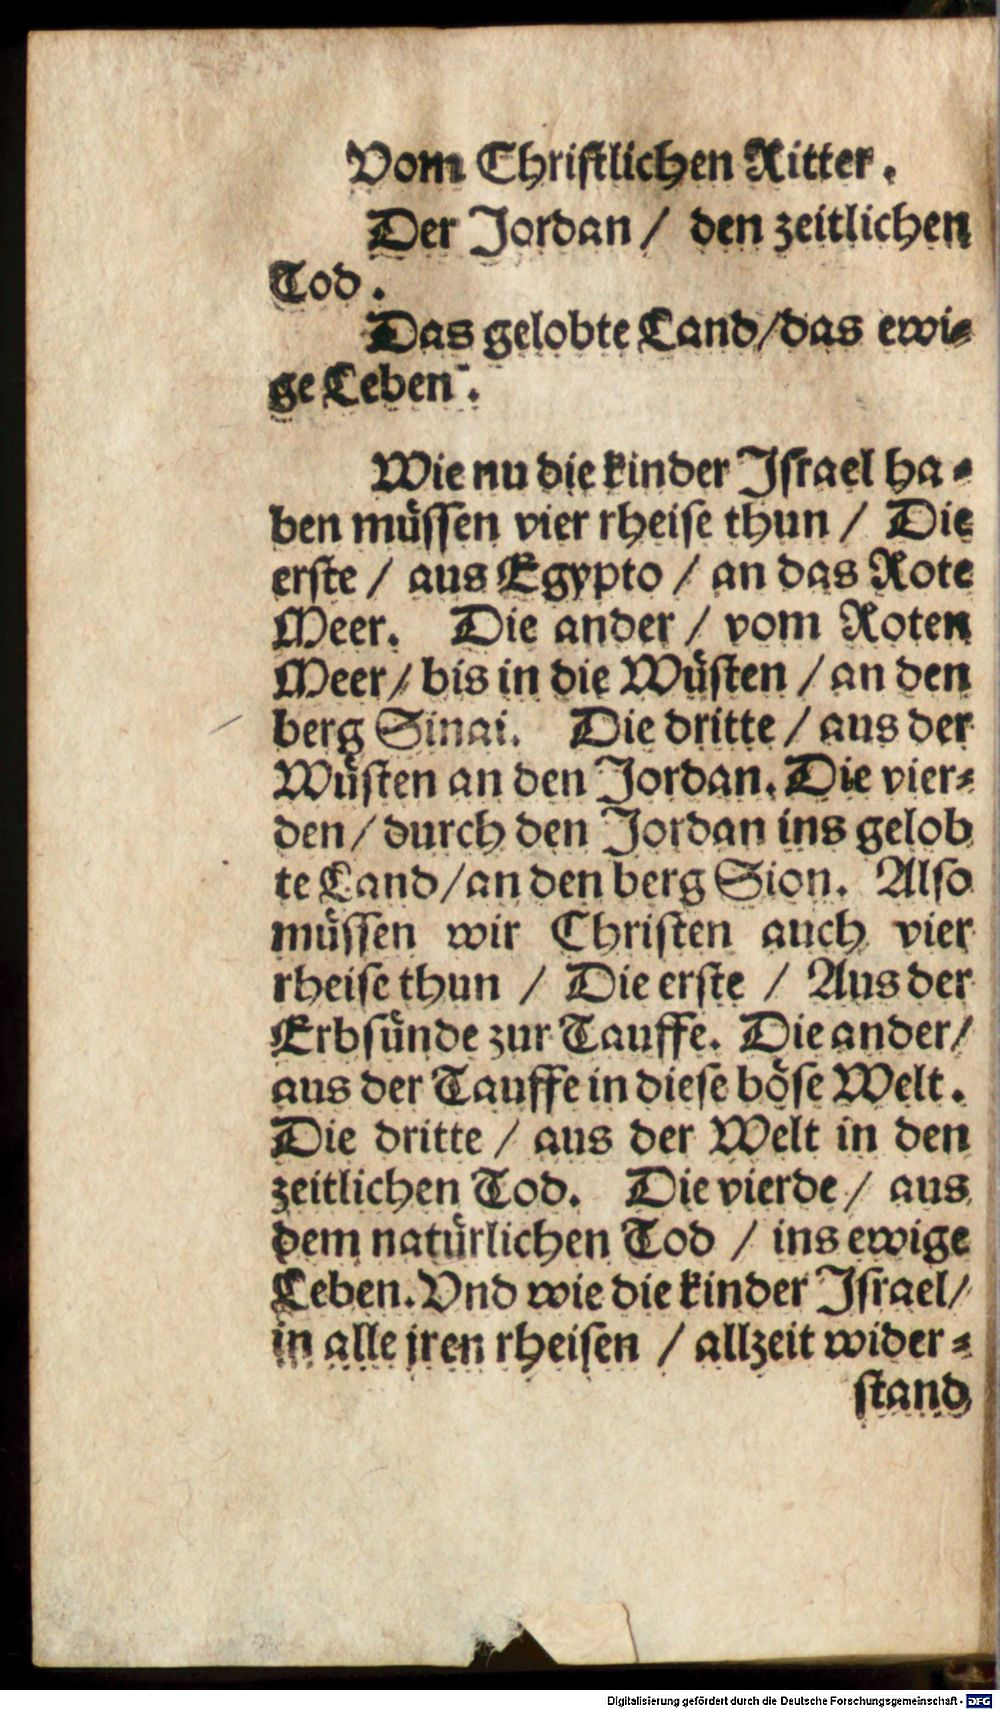 Vom Chriſtlichen Ritter.
Der Jordan / den zeitlichen
Tod.
Das gelobte Land/das ewi⸗
ge Leben.
Wie nu die kinder Jſrael ha⸗
ben müſſen vier rheiſe thun / Die
erſte / aus Egypto / an das Rote
Meer. Die ander / vom Roten
Meer/ bis in die Wüſten / an den
berg Sinai. Die dritte / aus der
Wüſten an den Jordan. Die vier⸗
den / durch den Jordan ins gelob
te Land/an den berg Sion. Alſo
müſſen wir Chriſten auch vier
rheiſe thun / Die erſte / Aus der
Erbſünde zur Tauffe. Die ander/
aus der Tauffe in dieſe böſe Welt.
Die dritte / aus der Welt in den
zeitlichen Tod. Die vierde / aus
dem natürlichen Tod / ins ewige
Leben. Vnd wie die kinder Jſrael/
in alle jren rheiſen / allzeit wider⸗
ſtand
Digitalisierung gefördert durch die Deutsche Forschungsgemeinschaft - DFG